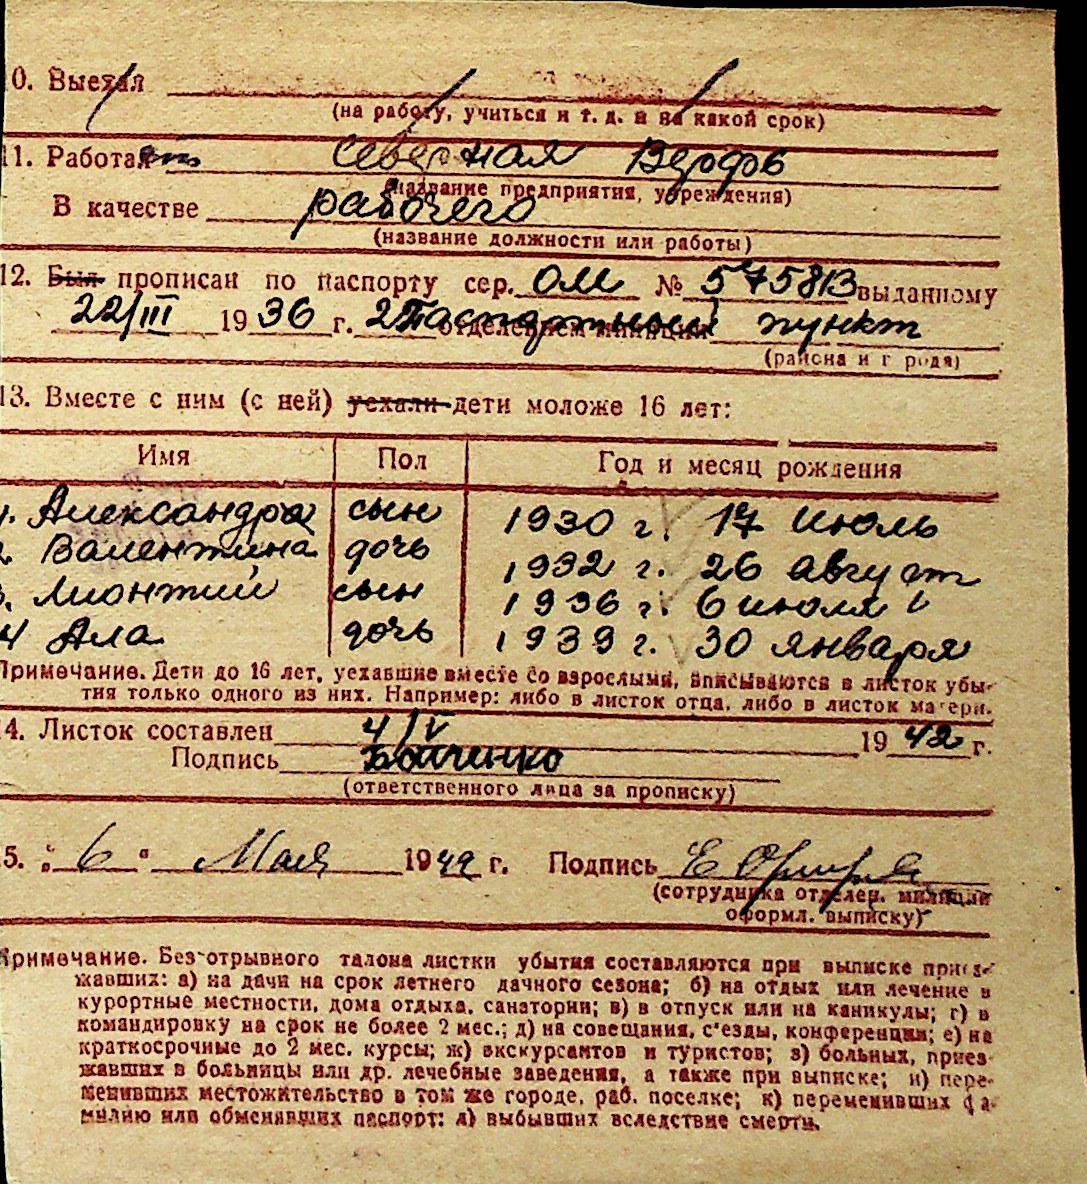 0. Выехал
(на работу, учиться и т. д. и на какой срок)
11. Работает Северная Верфь
(название предприятия, учреждения)
В качестве рабочего
(название должности или работы)
12. Был прописан по паспорту сер. ОМ № 575813 выданному
22/III 1936 г. 2 Паспортный отделением милиции пункт
(района и города)
13. Вместе с ним (с ней) уехали дети моложе 16 лет:
Имя Пол Год и месяц рождения
1. Александра сын 1930 г. 17 июль
2. Валентина дочь 1932 г. 26 август
3. Лионтий сын 1936 г. 6 июля
4 Ала дочь 1939 г. 30 января
Примечание. Дети до 16 лет, уехавшие вместе со взрослыми, вписываются в листок убы-
тия только одного из них. Например: либо в листок отца, либо в листок матери.
4. Листок составлен 4/V 1942 г.
Подпись Бойченко
(ответственного лица за прописку)
5. „6" Мая 1942 г. Подпись Е
(сотрудника отделен. милиции
оформл. выписку)
Примечание. Без отрывного талона листки убытия составляются при выписке приез-
жавших: а) на дачи на срок летнего дачного сезона; б) на отдых или лечение в
курортные местности, дома отдыха, санатории; в) в отпуск или на каникулы; г) в
командировку на срок не более 2 мес.; д) на совещания, с'езды, конференции; е) на
краткосрочные до 2 мес. курсы; ж) экскурсантов и туристов; з) больных, приез-
жавших в больницы или др. лечебные заведения, а также при выписке; и) пере-
менивших местожительство в том же городе, раб. поселке; к) переменивших фа-
милию или обменявших паспорт: л) выбывших вследствие смерти.